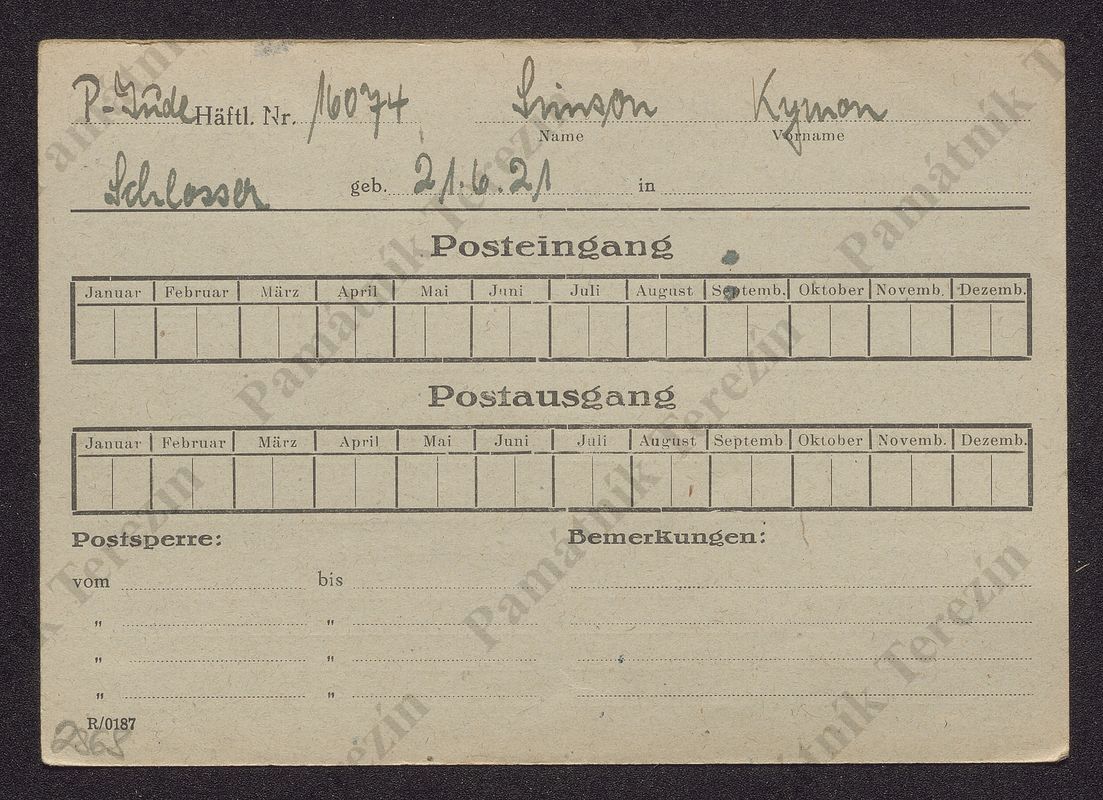 P-Jude Häftl. Nr. 16074 Simson Kymon
Name Vorname
Schlosser geb. 21.6.21 in
Posteingang
Januar Februar März April Mai Juni Juli August Septemb. Oktober Novemb. Dezemb.
Postausgang
Januar Februar März April Mai Juni Juli August Septemb Oktober Novemb. Dezemb.
Postsperre: Bemerkungen:
vom bis
" "
" "
" "
R/0187
Památník Terezín